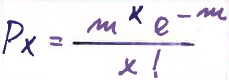 Px = m^x e^-m / x!